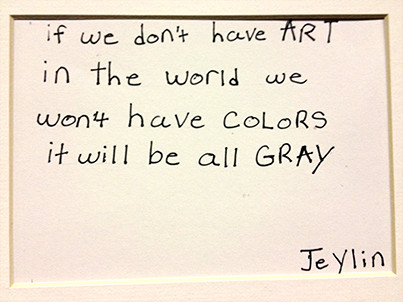 if we don't have ART
in the world we
won't have COLORS
it will be all GRAY
Jeylin